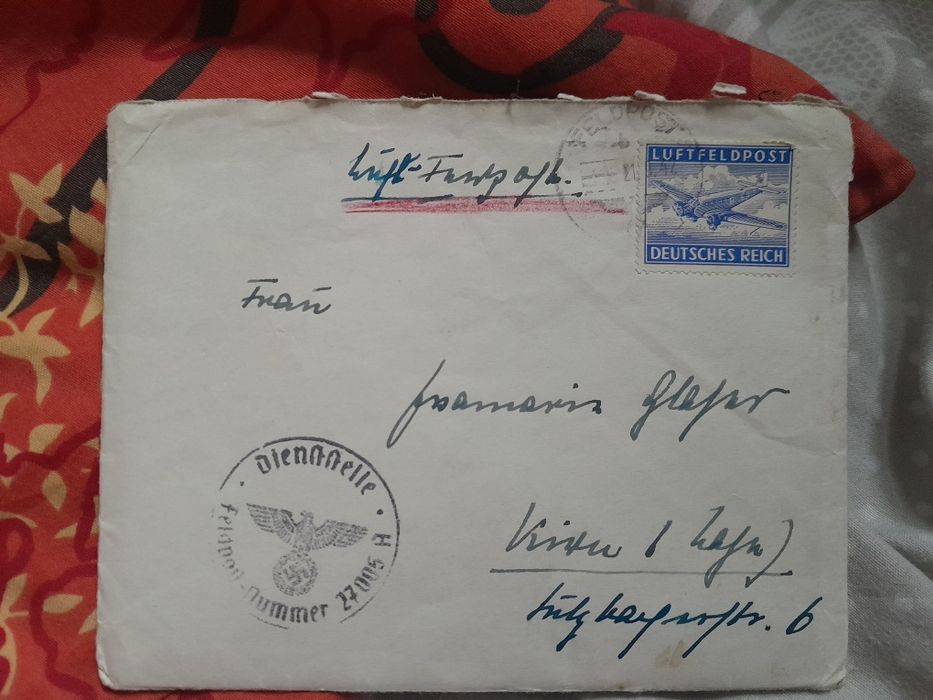 FELDPOST
LUFTFELDPOST
DEUTSCHES REICH
Luft-Feldpost.
Frau
Annamarie Glaser
Kirn (Nahe)
Sulzbacherstr. 6
Dienststelle
Feldpost-Nummer 27005 A